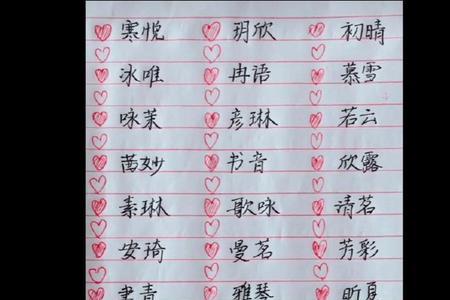 寒悦 玥欣 初晴
冰唯 冉语 慕雪
咏茉 彦琳 若云
茵妙 书音 欣露
素琳 歌咏 清茗
安琦 曼茗 芳彩
青 雅琴 昕夏